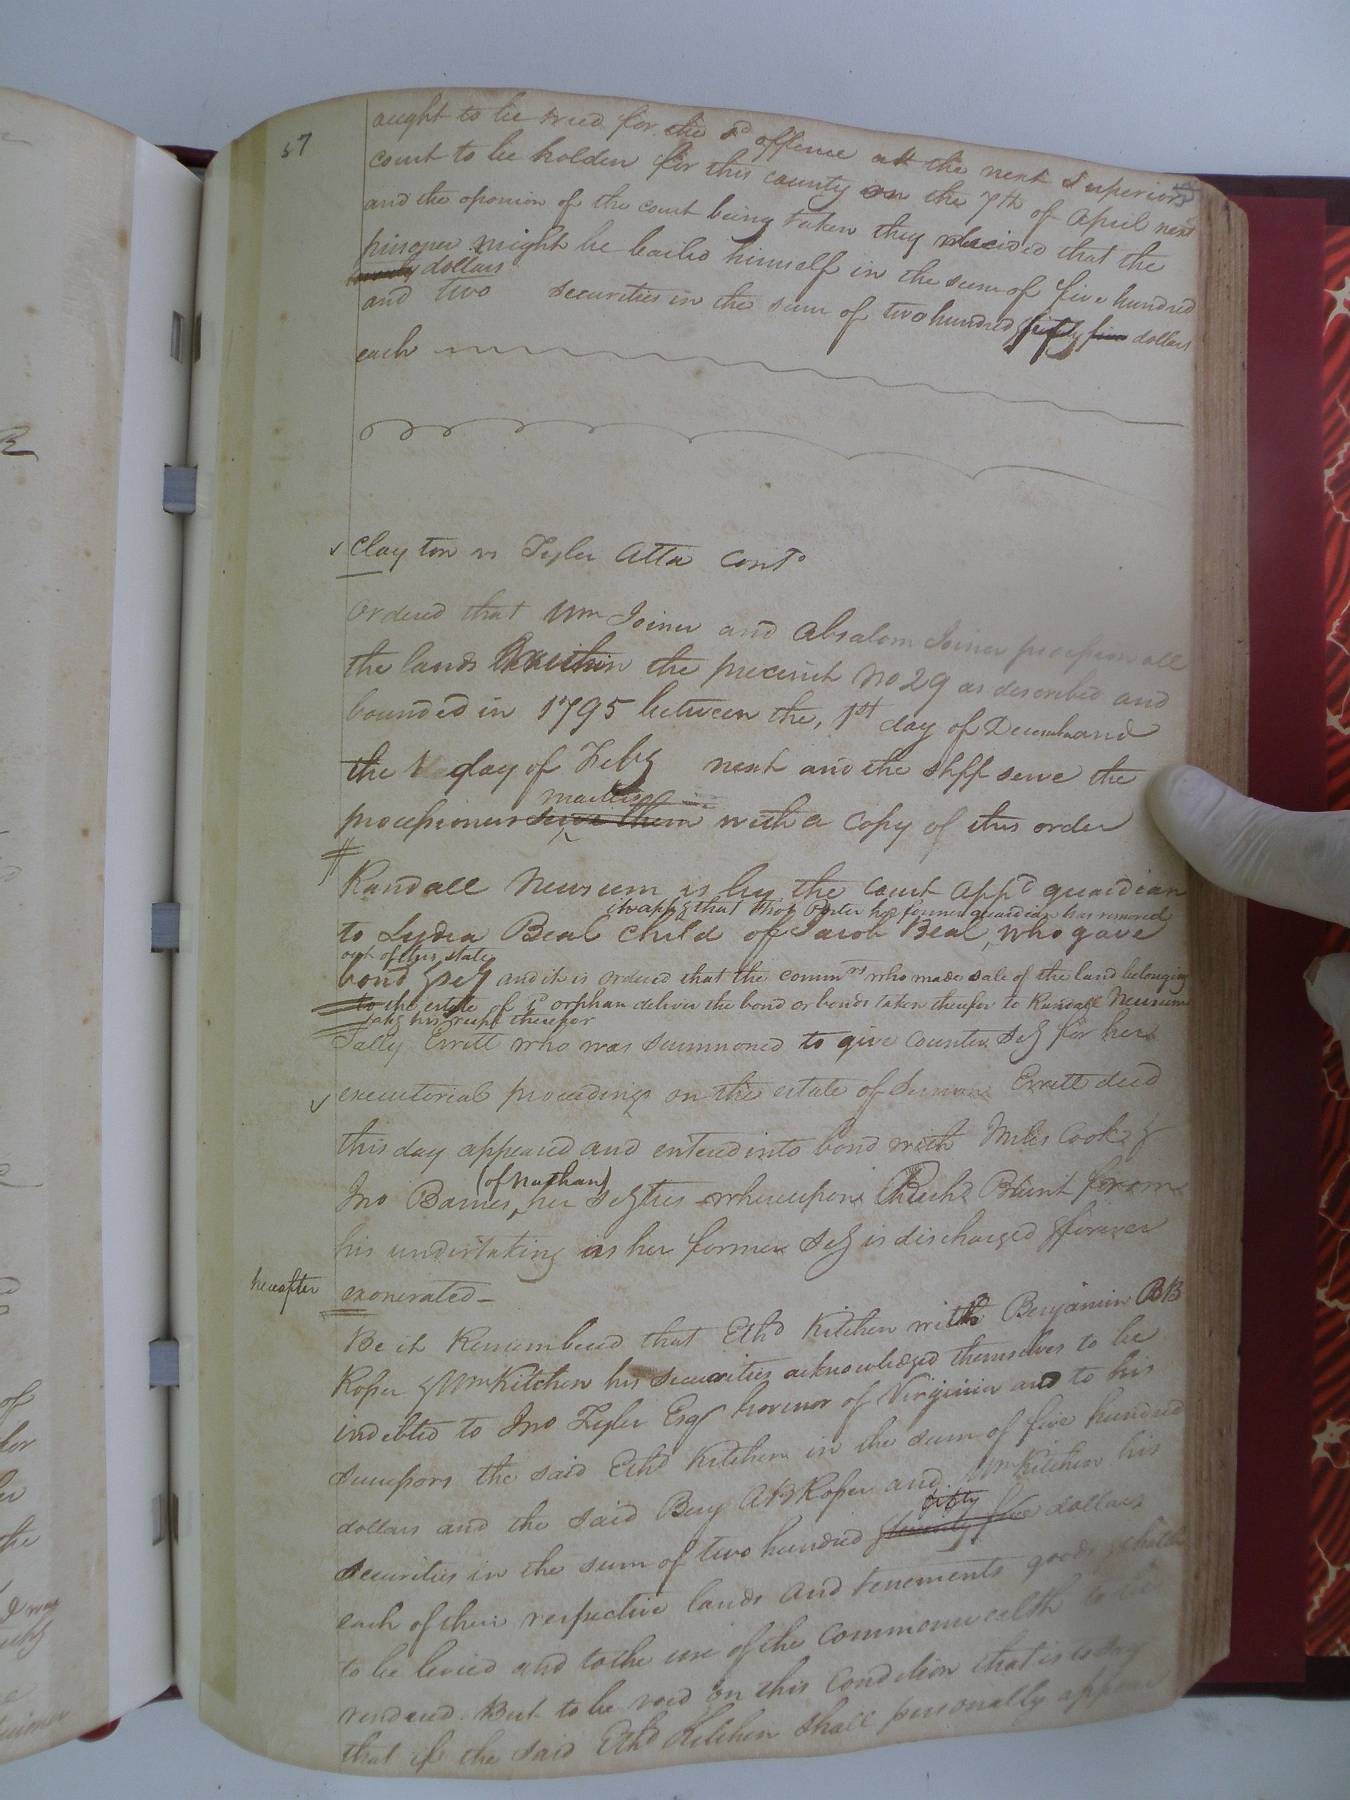 57
aught to be tried for the sd offence at the next Superior
court to be holden for this county on the 7th of April next
and the oponion of the court being taken they decided that the
prisoner might be bailed himself in the sum of five hundred
twenty dollars
and two securities in the sum of two hundred & fifty five dollars
each
Clayton vs Tyler Atta Cont
Ordered that Wm Joiner and Absalom Joiner procession all
the lands within the precinct No 29 as described and
bounded in 1795 between the 1st day of Decembr and
the day of Feby next and the shff serve the
masters
processioners with a copy of this order
Randall Newsum is by the Court appd guardian
it appg that Thos Porter her former guardian has removed
to Lydia Beal child of Jacob Beal, who gave
out of this state
bond & sey and it is ordered that the commrs who made sale of the land belonging
to the estate of sd orphan deliver the bond or bonds taken therefor to Randall Newsum
takg his recpt therefor
Sally Erritt who was summoned to give counter sey for her
executorial proceedings on the estate of Erritt decd
this day appeared and entered into bond with Miles Cook &
(of Nathan)
Jno Barnes, her seyties whereupon Richd Blunt from
his undertaking as her former sey is discharged & forever
hereafter
exonerated -
Be it Remembered that Ethd Kitchen with Benjamin AB
Roper & Wm Kitchen his securities acknowledged themselves to be
indebted to Jno Tyler Esqr Govenor of Virginia and to his
successors the said Ethd Kitchen in the sum of five hundred
dollars and the said Benj AB Roper and Wm Kitchen his
fifty
securities in the sum of two hundred & twenty five dollars
each of their respective lands and tenements goods & chattles
to be levied and to the use of the Commonwealth to be
rendered. But to be void on this condition that is to say
that if the said Ethd Kitchen shall personally appear